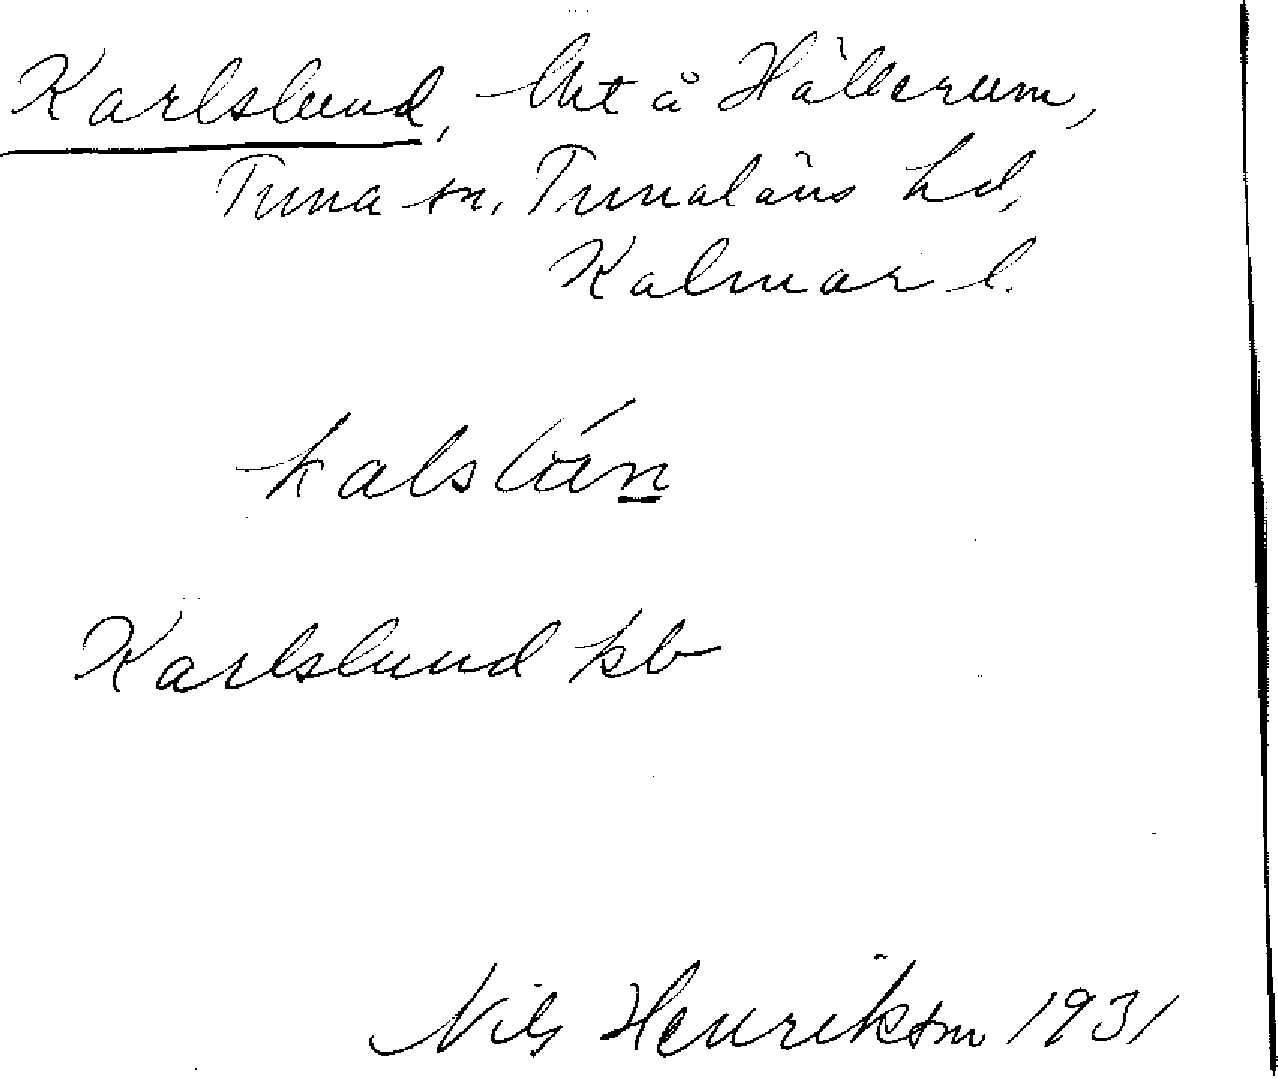 Karlslund, lht å Hällerum,
Tuna sn, Tunaläns hd,
Kalmar l.
Karlslund kb
Nils Henrikson 1931